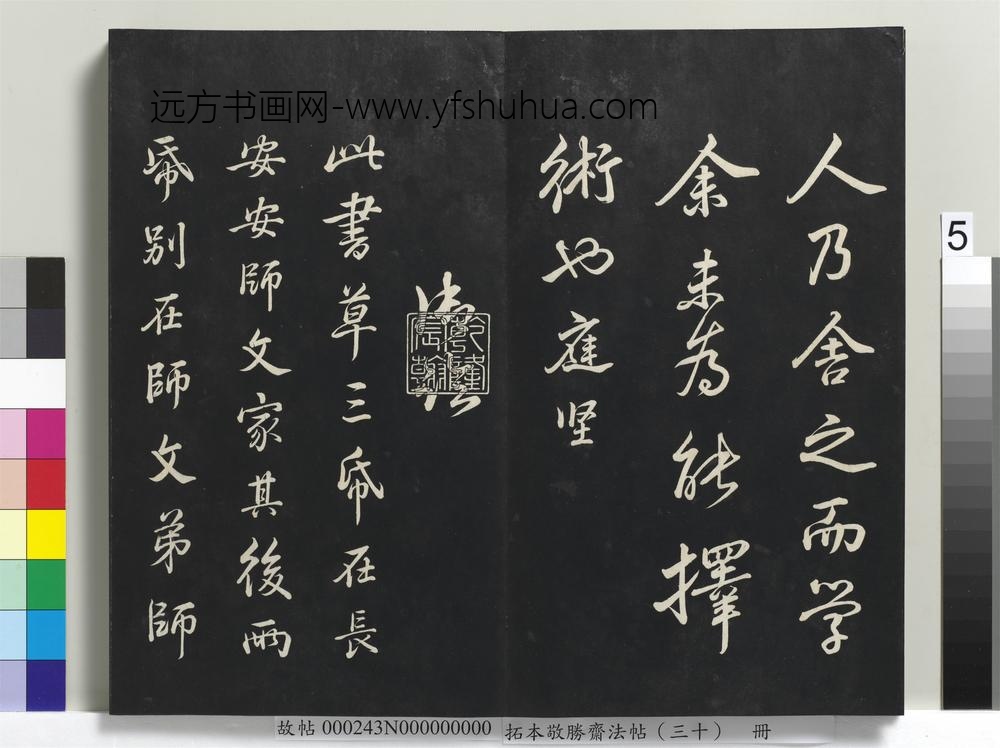 远方书画网-www.yfshuhua.com
人乃舍之而学
余未为能擇
術也庭坚
乾隆宸翰
此書草三帋在長
安安師文家其後兩
帋别在師文弟師
5
故帖 000243N000000000
拓本敬勝齋法帖（三十） 冊